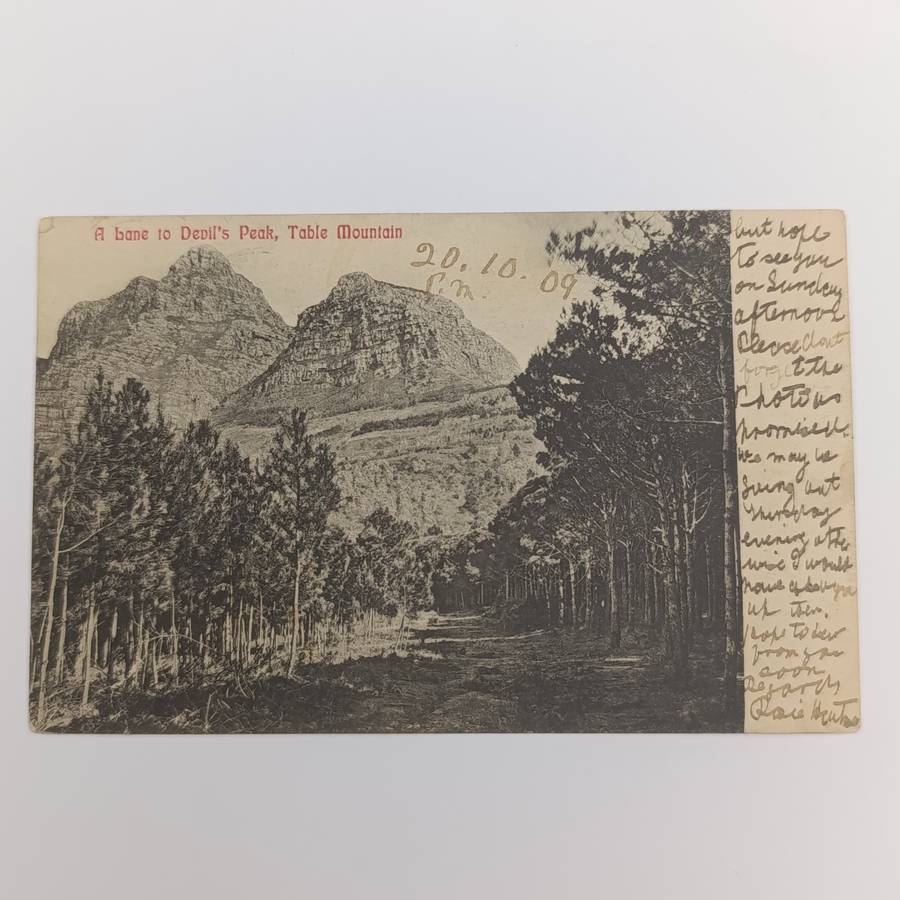 A Lane to Devil's Peak, Table Mountain
20. 10. 09
but hope
to see you
on Sunday
afternoon
Please dont
forget the
Photo as
promised.
We may be
going out
Thursday
evening other
wise I would
have asked you
up then.
hope to hear
from you
soon
Regards